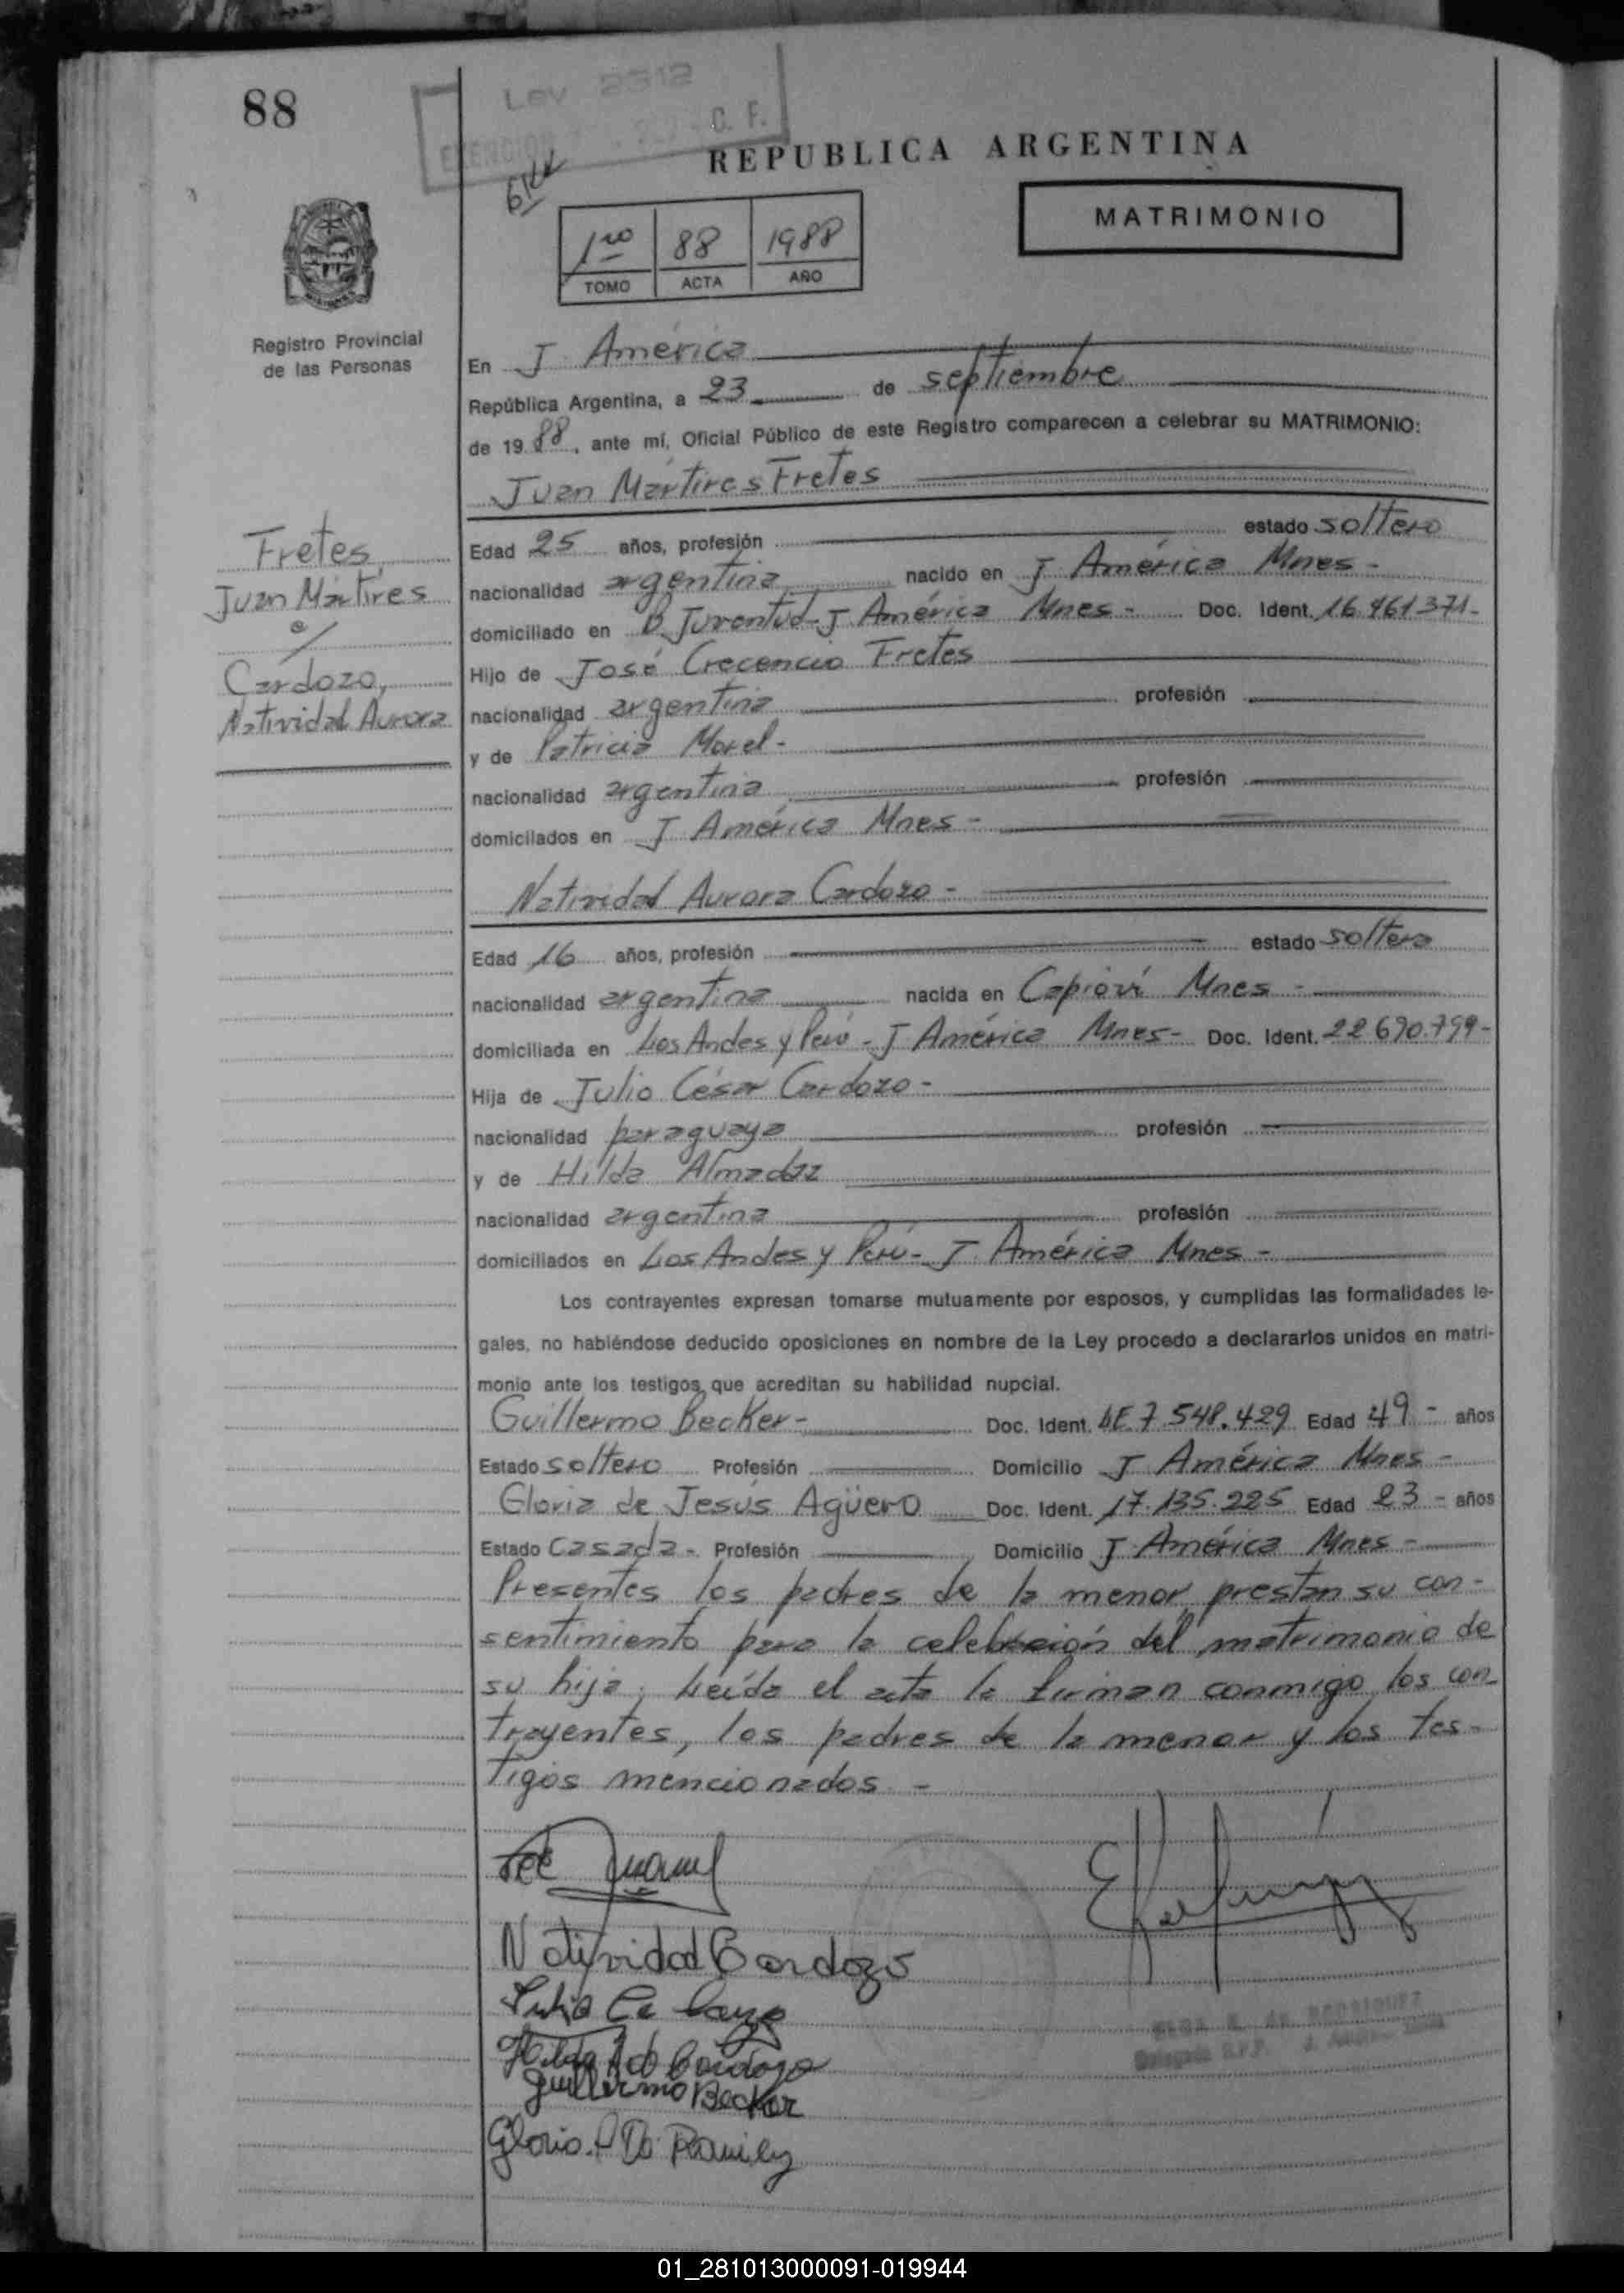 88
Ley 2312
C. F.
REPUBLICA ARGENTINA
MATRIMONIO
1ro 88 1988
TOMO ACTA AÑO
Registro Provincial
de las Personas
En J. América
República Argentina, a 23 de septiembre
de 1988, ante mí, Oficial Público de este Registro comparecen a celebrar su MATRIMONIO:
Juan Mártires Fretes
Fretes,
Juan Mártires
c/
Cardozo,
Natividad Aurora
Edad 25 años, profesión estado soltero
nacionalidad argentina nacido en J. América Mnes -
domiciliado en B. Juventud - J. América Mnes - Doc. Ident. 16.461.371-
Hijo de José Crecencio Fretes
nacionalidad argentina profesión
y de Patricia Morel -
nacionalidad argentina profesión
domicilados en J. América Mnes -
Natividad Aurora Cardozo -
Edad 16 años, profesión estado soltera
nacionalidad argentina nacida en Capioví Mnes -
domiciliada en Los Andes y Perú - J. América Mnes - Doc. Ident. 22.690.799-
Hija de Julio César Cardozo -
nacionalidad paraguaya profesión
y de Hilda Almada
nacionalidad argentina profesión
domiciliados en Los Andes y Perú - J. América Mnes -
Los contrayentes expresan tomarse mutuamente por esposos, y cumplidas las formalidades le-
gales, no habiéndose deducido oposiciones en nombre de la Ley procedo a declararlos unidos en matri-
monio ante los testigos que acreditan su habilidad nupcial.
Guillermo Becker - Doc. Ident. LE 7.548.429 Edad 49 - años
Estado soltero Profesión Domicilio J. América Mnes -
Gloria de Jesús Agüero Doc. Ident. 17.135.225 Edad 23 - años
Estado casada - Profesión Domicilio J. América Mnes -
Presentes los padres de la menor, prestan su con-
sentimiento para la celebración del matrimonio de
su hija. Leída el acta la firman conmigo los con-
trayentes, los padres de la menor y los tes-
tigos mencionados -
Natividad Cardozo
Hilda A de Cardozo
Guillermo Becker
01_281013000091-019944